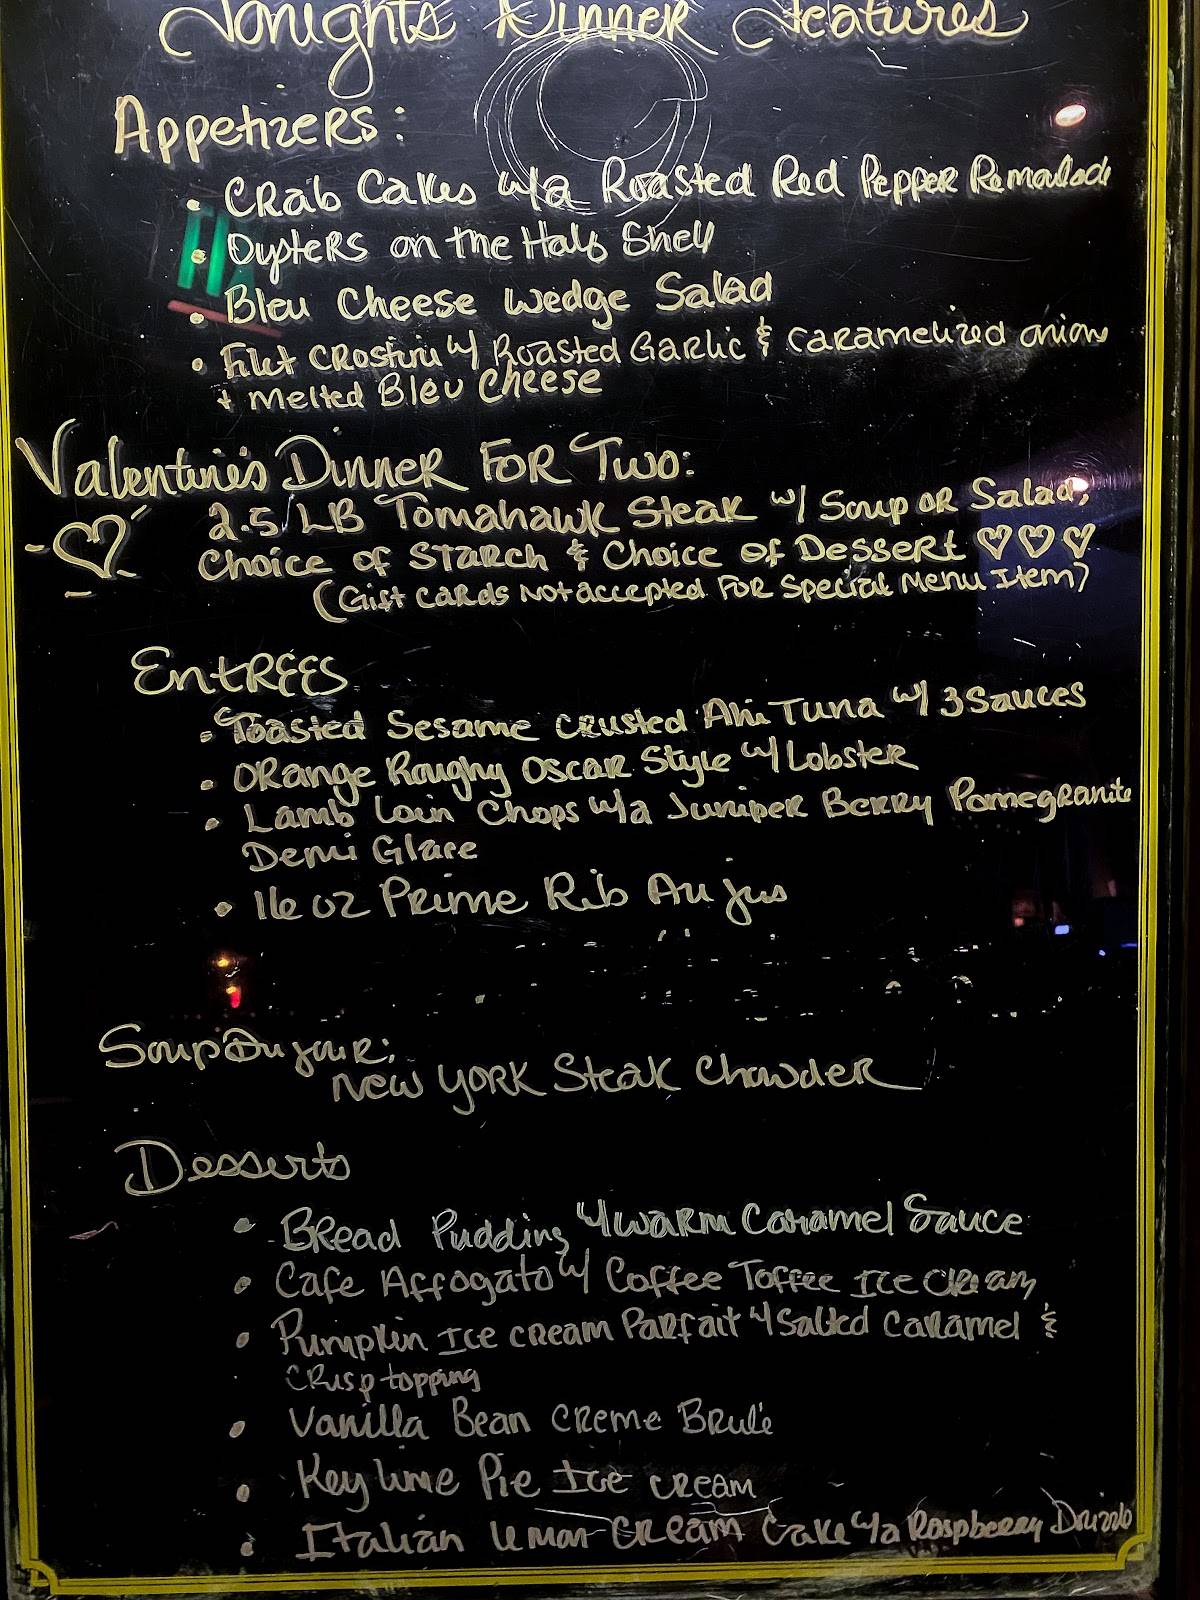 Tonights Dinner Features
Appetizers:
• Crab Cakes w/a Roasted Red Pepper Remoulade
• Oysters on the Half Shell
• Bleu Cheese Wedge Salad
• Filet Crostini w/ Roasted Garlic & Caramelized onions
+ Melted Bleu Cheese
Valentine's Dinner For Two:
2.5 LB Tomahawk Steak w/ Soup or Salad,
Choice of Starch & Choice of Dessert ♡♡♡
(Gift cards Not accepted For Special Menu Item)
Entrees
• Toasted Sesame Crusted Ahi Tuna w/ 3 Sauces
• Orange Roughy Oscar Style w/ Lobster
• Lamb Loin Chops w/a Juniper Berry Pomegranite
Demi Glace
• 16 oz Prime Rib Au jus
Soup Du jour:
New York Steak Chowder
Desserts
• Bread Pudding w/ warm Caramel Sauce
• Cafe Affogato w/ Coffee Toffee Ice Cream
• Pumpkin Ice cream Parfait w/ Salted Caramel &
Crisp topping
• Vanilla Bean Creme Brule
• Key lime Pie Ice cream
• Italian lemon Cream Cake w/a Raspberry Drizzle